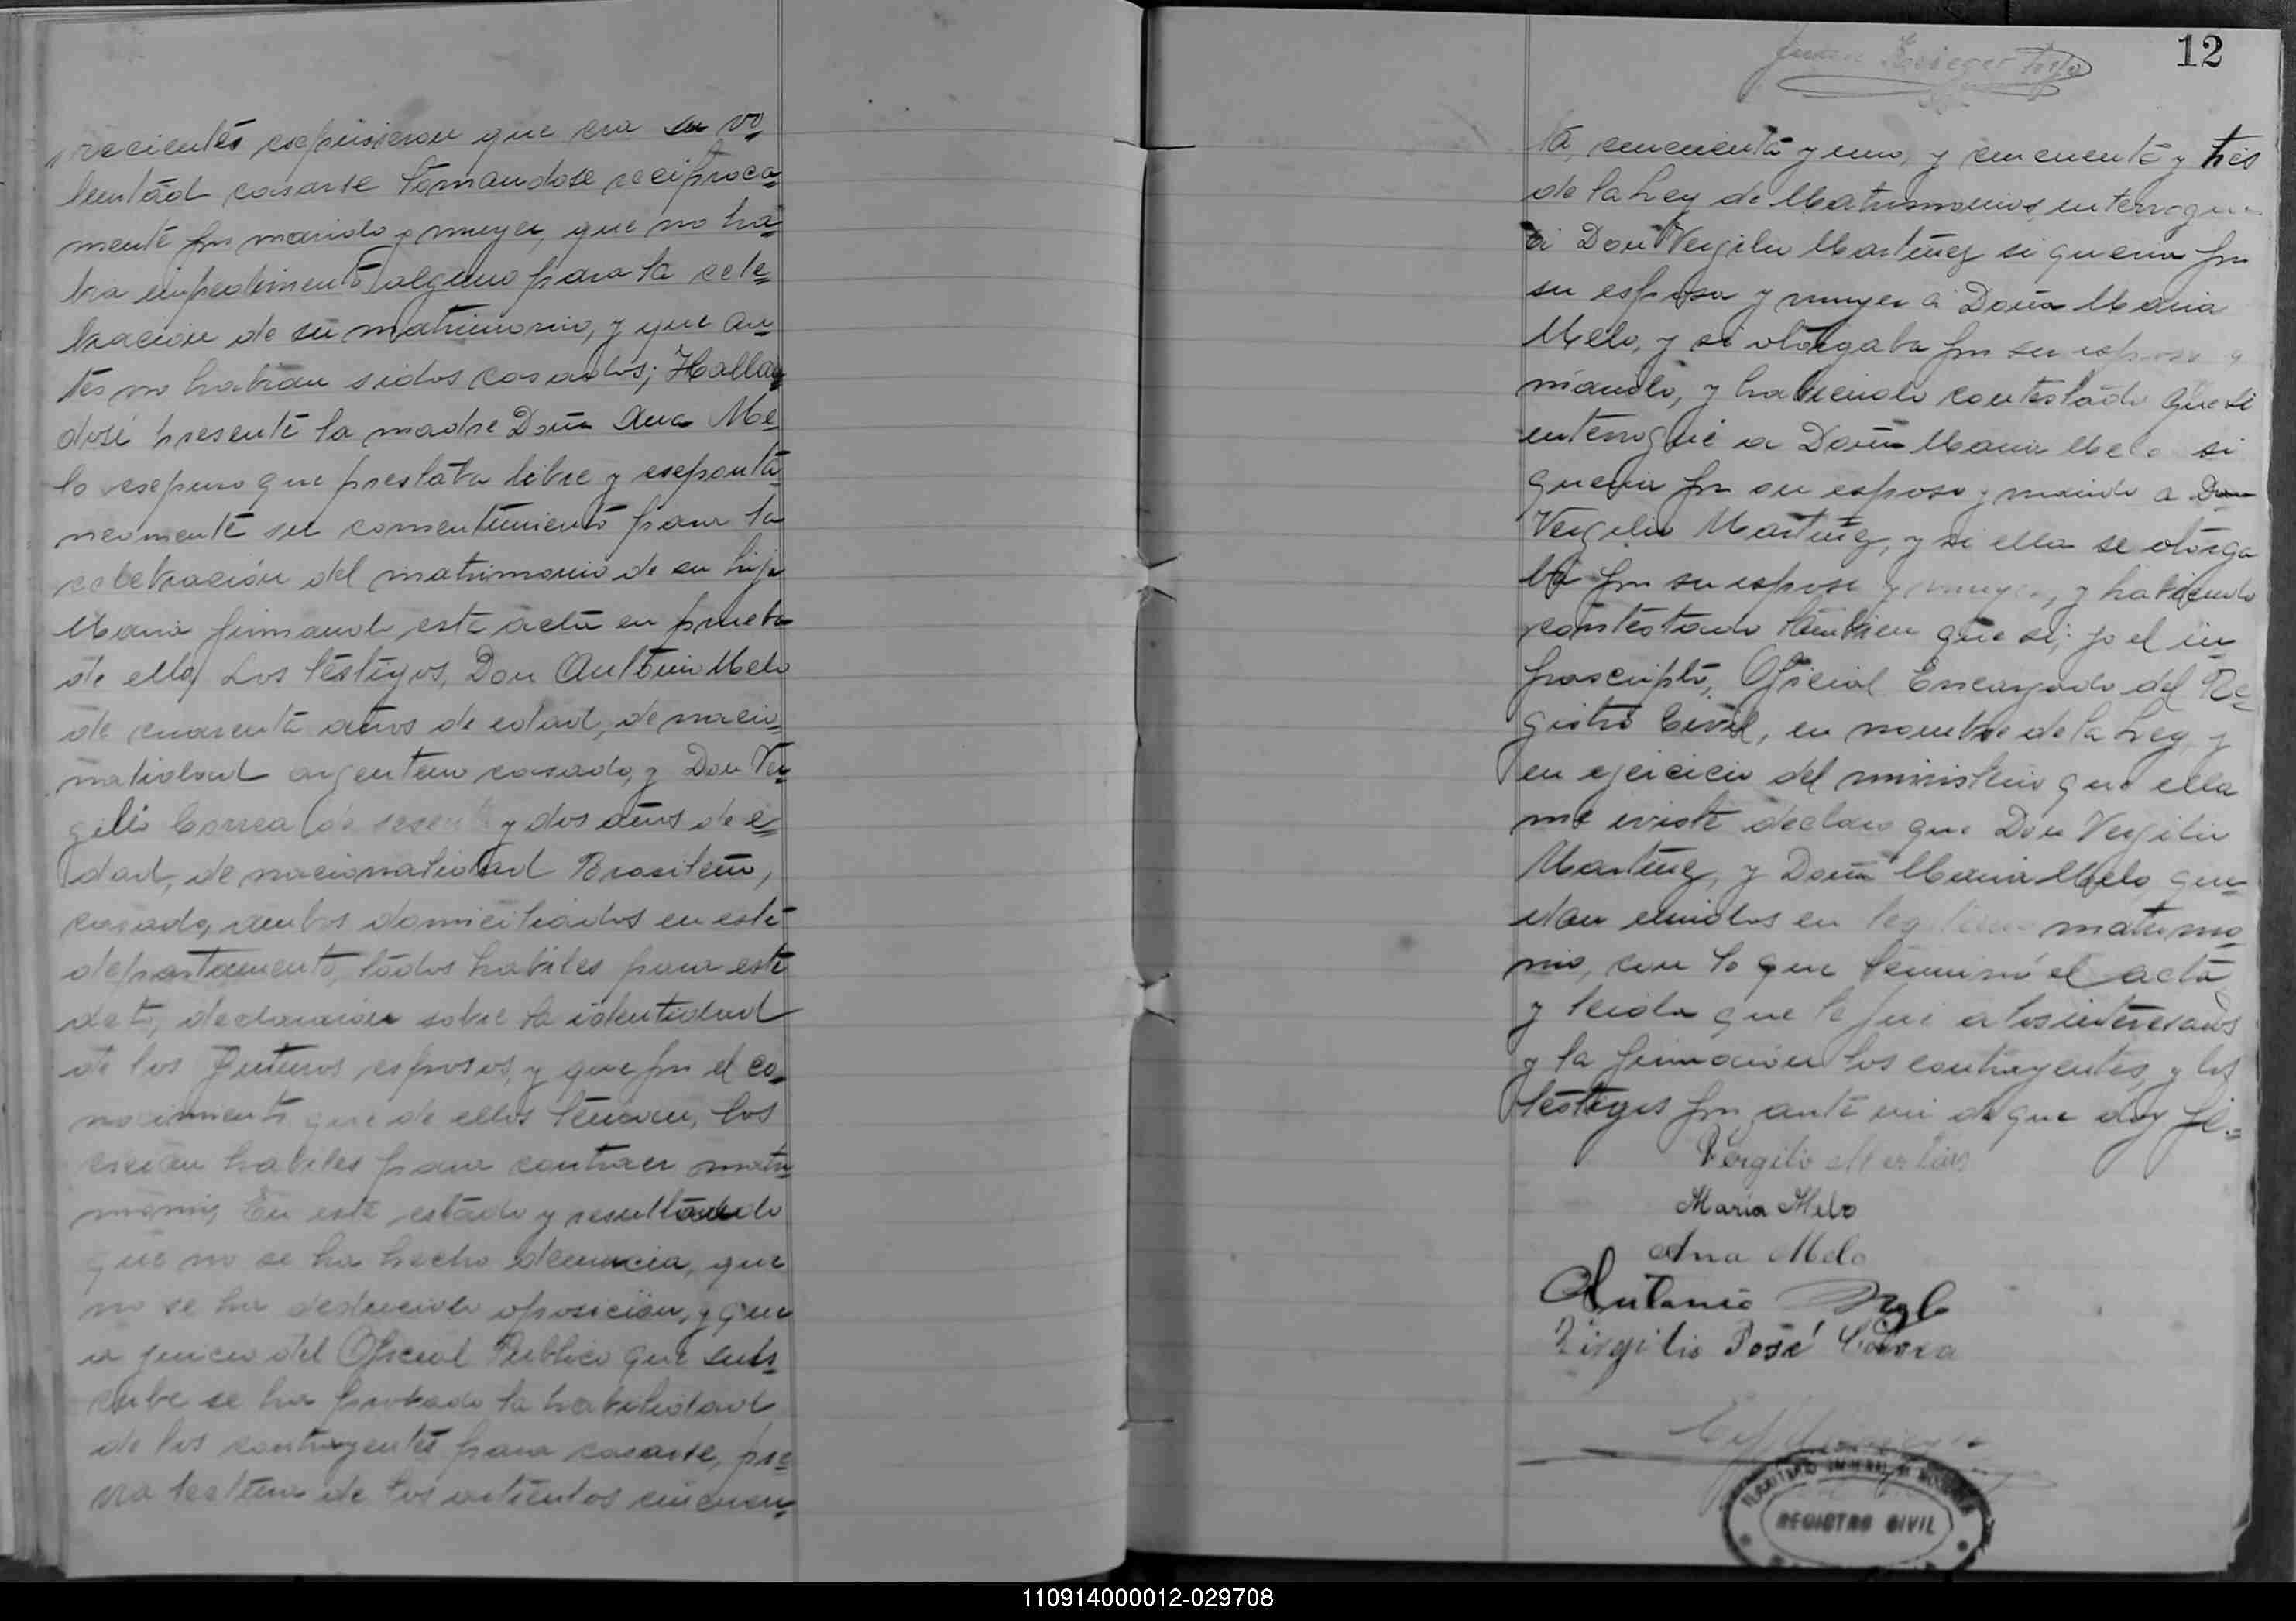 recientes expusieron que era su vo=
luntad casarse tomandose reciproca=
mente por marido y muger, que no ha=
bia impedimento alguno para la cele=
bracion de su matrimonio, y que an=
tes no habian sidos casados; Hallan
dosé presente la madre Doña Ana Me=
lo expuso que prestaba libre y espontá=
neamente su consentimiento para la
celebración del matrimonio de su hija
Maria firmando este acta en prueba
de ello, Los testigos, Don Antonio Melo
de cuarenta años de edad, de nacio=
nalidad argentino casado, y Don Ver=
gilio Correa de sesenta y dos años de e=
dad, de nacionalidad Brasileño,
casado, ambos domiciliados en este
departamento, todos habiles para este
acto, declararón sobre la identidad
de los futuros esposos, y que por el co=
nocimiento que de ellos tenian, los
creian habiles para contraer matri=
monio, En este estado y resultando
que no se ha hecho denuncia, que
no se ha deducido oposición, y que
a juicio del Oficial Publico que subs=
cribe se ha probado la habilidad
de los contrayentes para casarse, pre=
via lectura de los articulos cincuen=
12
Juan Krieger
ta, cincuenta y uno, y cincuenta y tres
de la Ley de Matrimonios, interrogue
si Don Vergilio Martinez si queria por
su esposa y muger á Doña Maria
Melo, y si otorgaba por su esposo y
marido, y habiendo contestado que si
interrogué a Doña Maria Melo si
queria por su esposo y marido a Don
Vergilio Martinez, y si ella se otorga
ba por su esposa y muger, y habiendo
contestado tambien que si; yo el in=
frascripto, Oficial Encargado del Re=
gistro Civil, en nombre de la Ley, y
en ejercicio del ministerio que ella
me iviste declaro que Don Vergilio
Martinez, y Doña Maria Melo, que=
dan unidos en legitimo matrimo=
nio, con lo que terminó el acta
y leida que le fué a los interesados
y la firmarón los contrayentes, y los
testigos por ante mi de que doy fé.=
Vergilio Martines
Maria Melo
Ana Melo
Antonio Melo
Virgilio José Correa
REGISTRO CIVIL
110914000012-029708